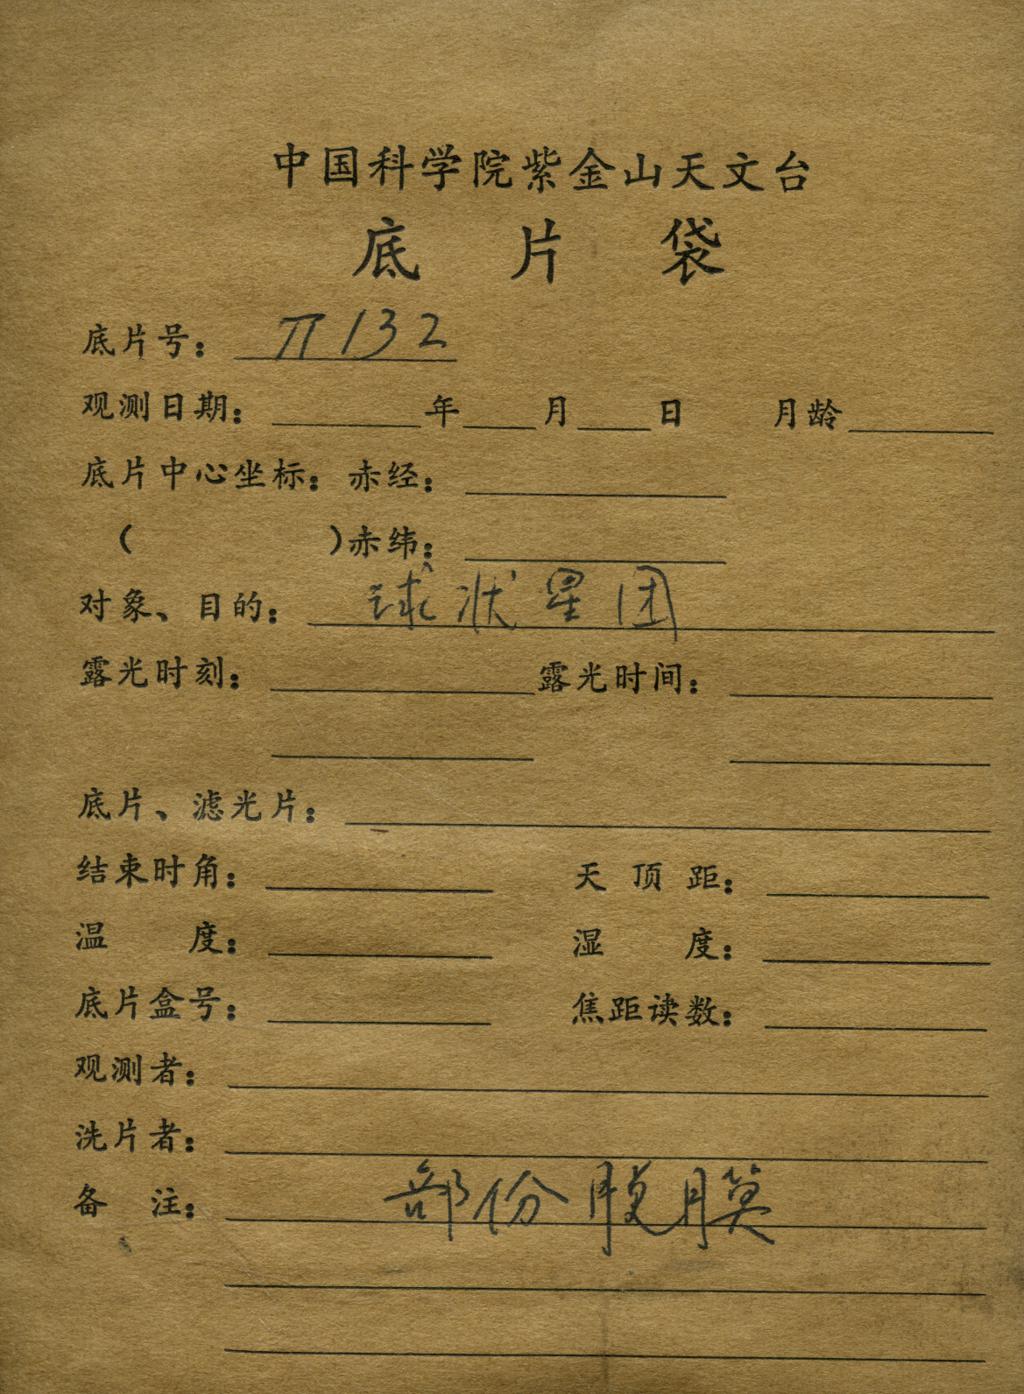 中国科学院紫金山天文台
底片袋
底片号：π132
观测日期： 年 月 日 月龄
底片中心坐标：赤经：
（ ）赤纬：
对象、目的：球状星团
露光时刻： 露光时间：
底片、滤光片：
结束时角： 天顶距：
温度： 湿度：
底片盒号： 焦距读数：
观测者：
洗片者：
备注：部份脱膜